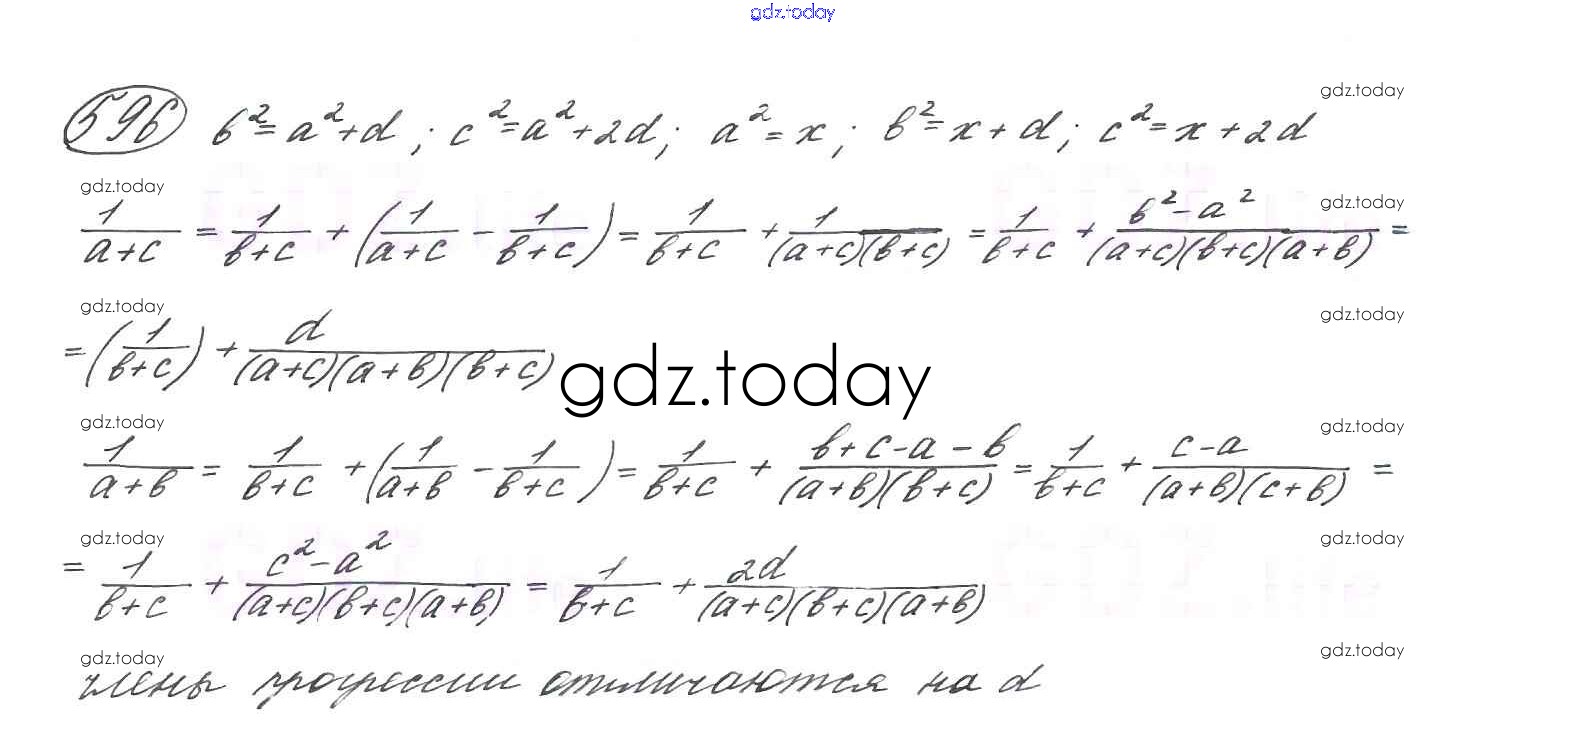 gdz.today
596 b²=a²+d; c²=a²+2d; a²=x; b²=x+d; c²=x+2d
gdz.today
gdz.today gdz.today
1/(a+c) = 1/(b+c) + (1/(a+c) - 1/(b+c)) = 1/(b+c) + 1/((a+c)(b+c)) = 1/(b+c) + (b²-a²)/((a+c)(b+c)(a+b)) =
gdz.today gdz.today
=(1/(b+c)) + d/((a+c)(a+b)(b+c))
gdz.today
gdz.today gdz.today
1/(a+b) = 1/(b+c) + (1/(a+b) - 1/(b+c)) = 1/(b+c) + (b+c-a-b)/((a+b)(b+c)) = 1/(b+c) + (c-a)/((a+b)(c+b)) =
gdz.today gdz.today
= 1/(b+c) + (c²-a²)/((a+c)(b+c)(a+b)) = 1/(b+c) + 2d/((a+c)(b+c)(a+b))
gdz.today gdz.today
члены прогрессии отличаются на d